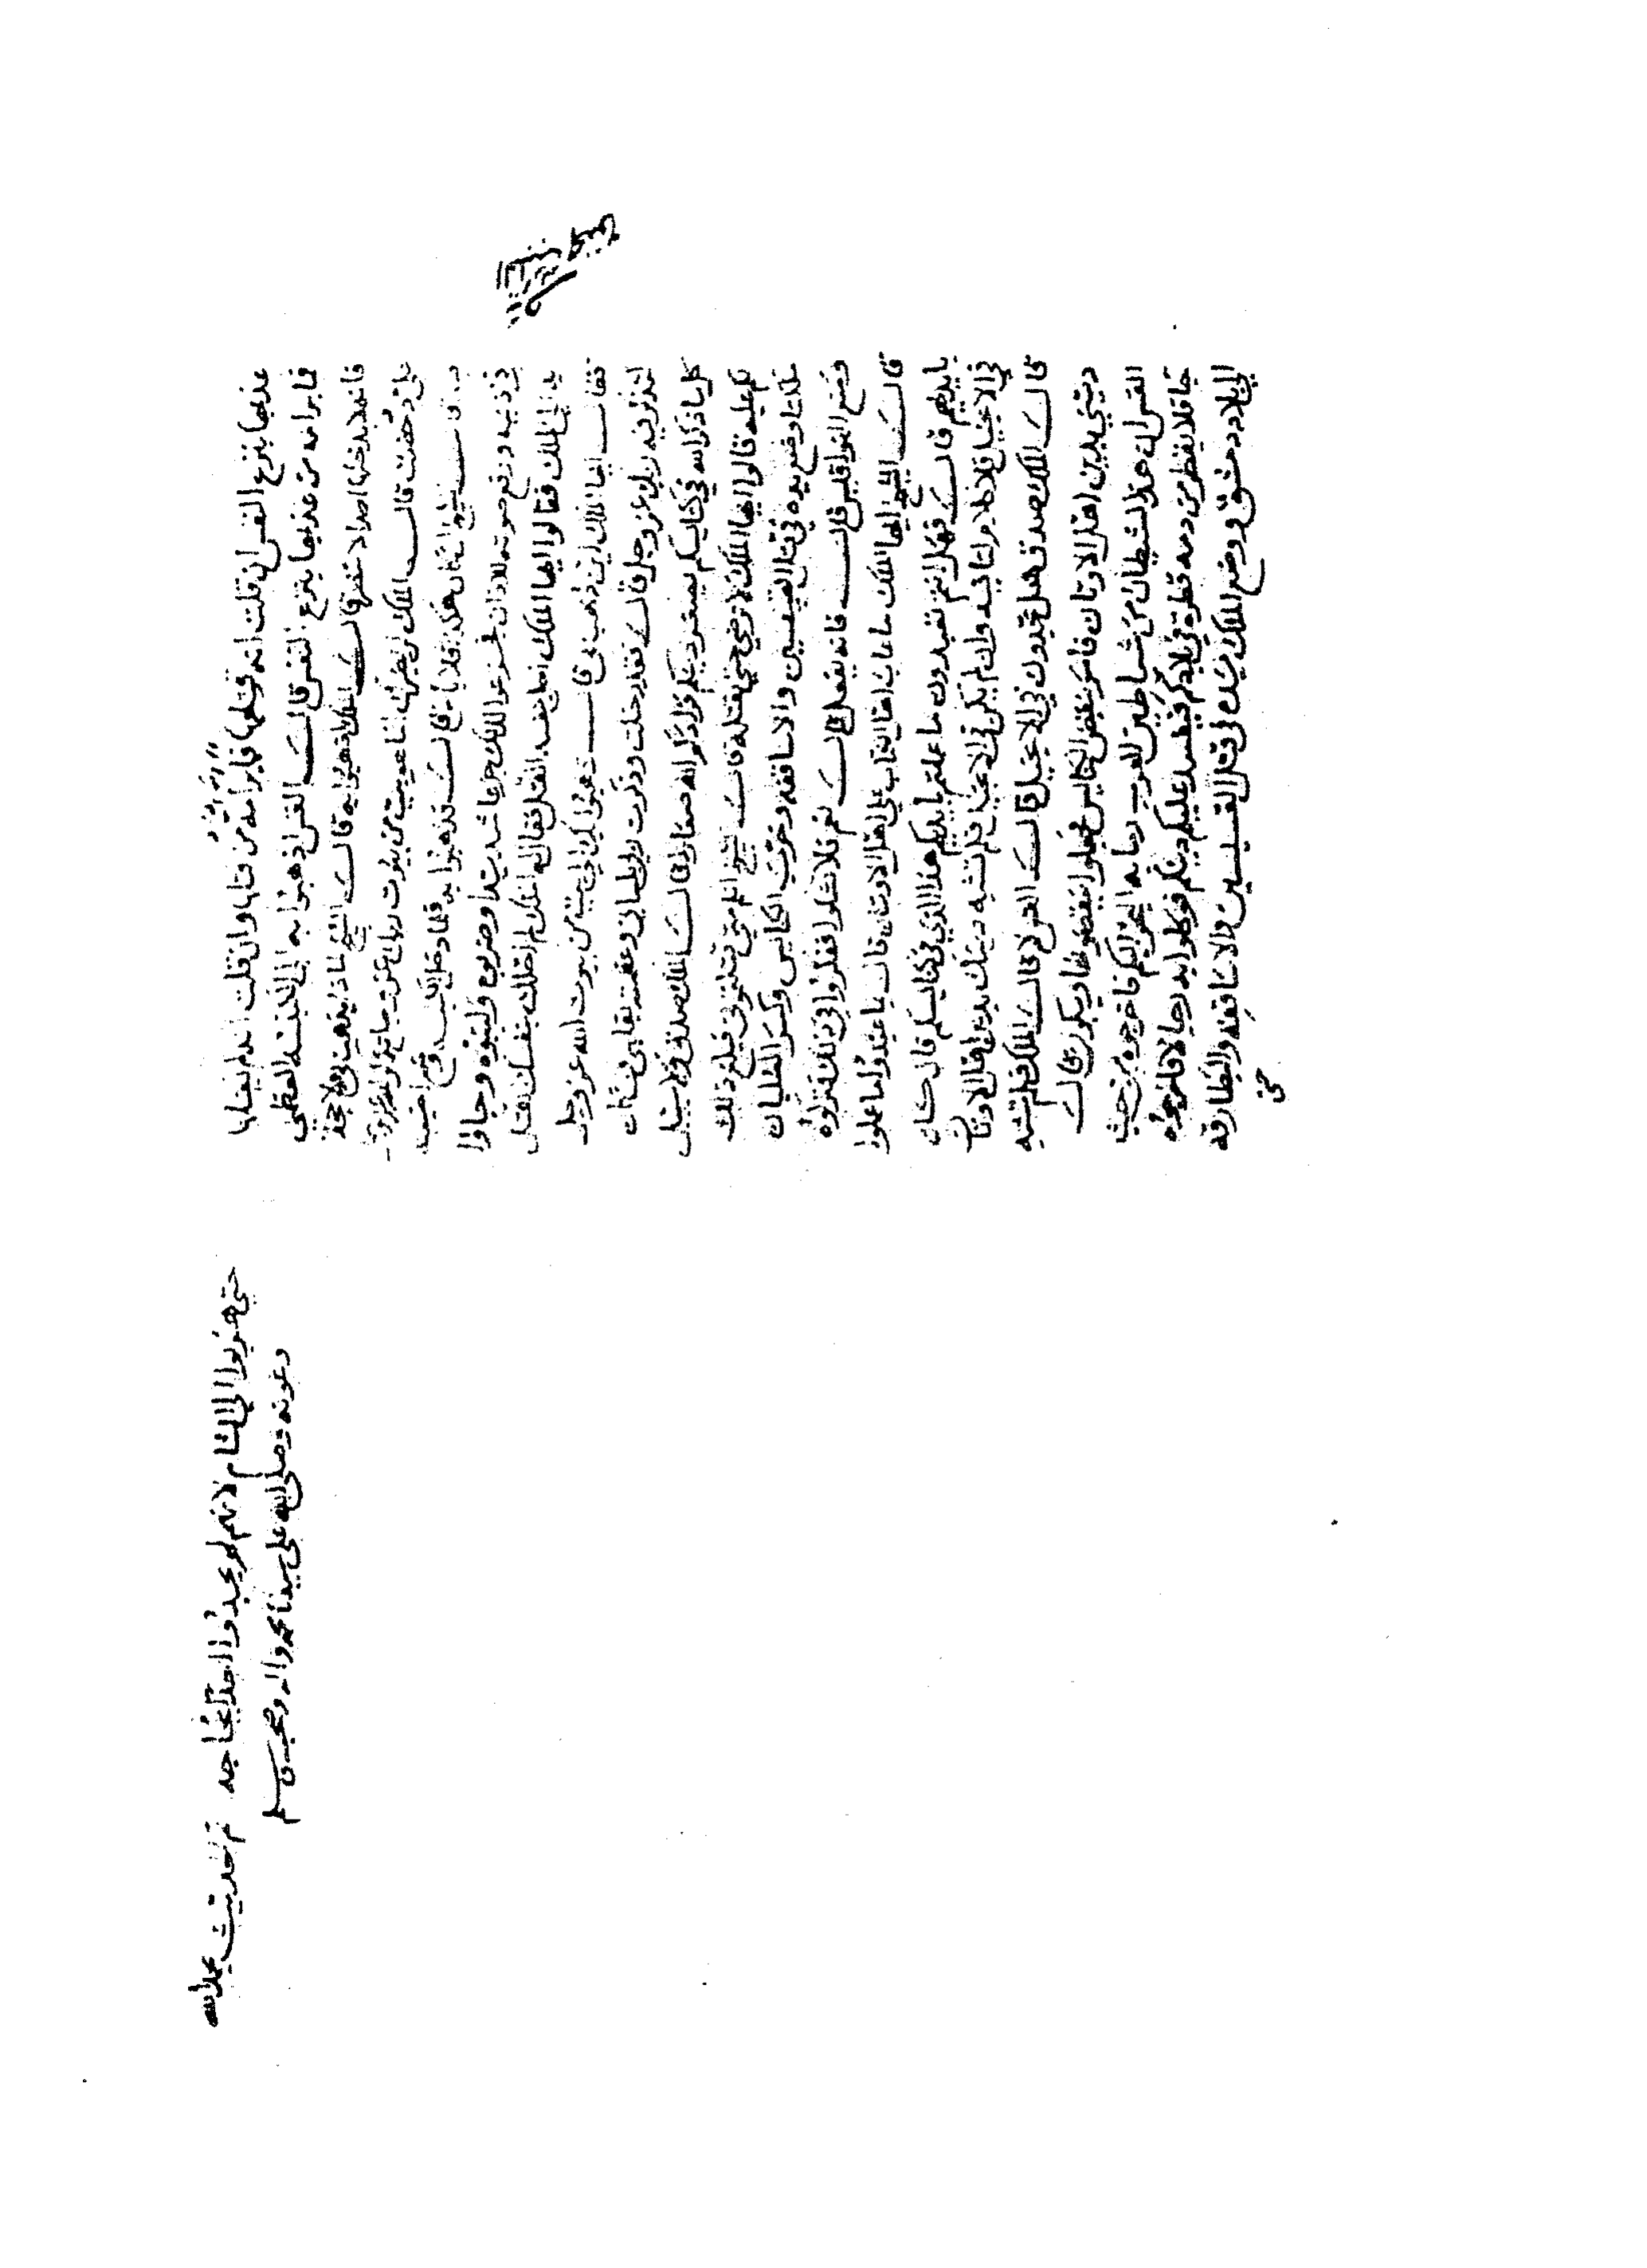 عذبها بنزع النفس ان قلت انه قتلها فابرامه من قتلها وان قلت انه لم يقتلها
فما برامه من عذبها بنزع النفس قالت القس اذهبوا به الى الكنيسة العظمى
فانه لا يدخلها احد الا تنصر قال الملك اذهبوا به قال الشيخ لماذا يذهب بي ولا حجة
علي دحضت قال الملك لن يضرك انما هو بيت من بيوت ربك عز وجل
قال الشيخ ان كان هكذا فلا باس قال فذهبوا به فلما دخل الكنيسة وضع اصبعيه
في اذنيه ورفع صوته بالاذان فجزعوا لذلك جزعا شديدا وضربوه ولببوه وجاؤا
به الى الملك فقالوا ايها الملك احل بنفسه القتل فقال له الملك لم احللت بنفسك القتل
فقال ايها الملك اين ذهب بي قال ذهبوا بك الى بيت من بيوت الله عز وجل
لتذكر فيه ربك عز وجل قال فقد دخلت وذكرت ربي بلساني وعظمته بقلبي فان كان
كل ما ذكر الله في كنايسكم يصغر دينكم فزادكم الله صغارا قال الملك صدق ولا سبيل
لكم عليه قالوا ايها الملك لا نرضى حتى نقتله قال الشيخ انكم متى قتلتموني فبلغ ذلك
ملكنا وضع يده في قتل القسيسين والاساقفه وخرب الكنايس وكسر الصلبان
ومنع النواقيس قال فانه يفعل قال نعم فلا تشكوا ففكروا في ذلك فتركوه
قال الشيخ ايها الملك ما عاب اهل الكتاب على اهل الاوثان قال بما عبدوا ما عملوا
بايديهم قال فهل انتم تعبدون ما عملتم بايديكم هذا الذي في كنايسكم فان كان
في الانجيل فلا كلام لنا فيه وان لم يكن في الانجيل فلم تشبه دينك بدين اهل الاوثان
قال الملك صدق هل تجدون في الانجيل قال القس لا قال الملك فلم تشبه
ديني بدين اهل الاوثان فامر بنقض الكنايس فجعلوا ينقضونها ويبكون قال
القس ان هذا لشيطان من شياطين العرب رما به البحر اليكم فاخرجوه من حيث
جا فلا يقطر من دمه قطرة في بلادكم فيفسد عليكم دينكم فوكلوا به رجالا فاخرجوه
الى بلاد دمشق ووضع الملك يده في قتل القسيسين والاساقفه والبطارقة
حتى
حتى هربوا الى الشام لانهم لم يجدوا احدا يحاجه تم الحديث بحمد الله
وعونه وصلى الله على سيدنا محمد واله وصحبه وسلم